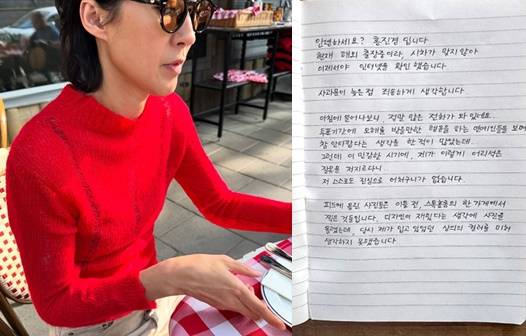 안녕하세요? 홍진경 입니다
현재 해외 출장중이라, 시차가 맞지 않아
이제서야 인터넷을 확인 했습니다.
사과문이 늦은점 죄송하게 생각합니다.
아침에 일어나보니, 정말 많은 전화가 와 있더군요.
투표기간에 오해를 받을만한 행동을 하는 연예인들을 보며
참 안타깝다는 생각을 한 적이 많았는데.
그런데 이 민감한 시기에, 제가 이렇게 어리석은
잘못을 저지르다니..
저 스스로도 진심으로 어처구니가 없습니다.
피드에 올린 사진들은 이틀 전, 스톡홀름의 한 가게에서
찍은 것들입니다. 디자인이 재밌다는 생각에 사진을
올렸는데, 당시 제가 입고 있었던 상의의 컬러를 미처
생각하지 못했습니다.